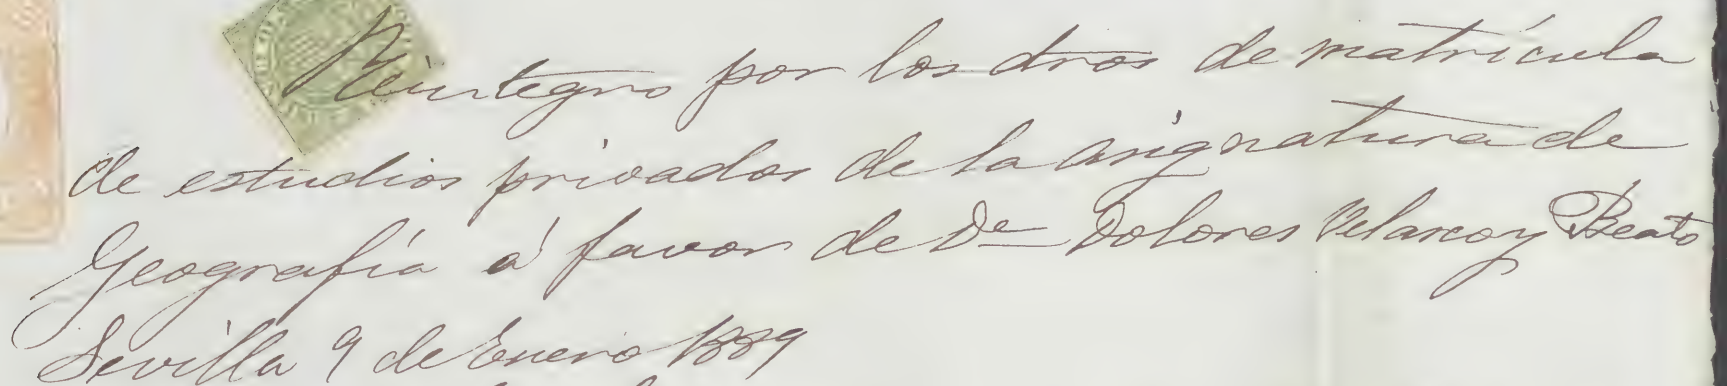 Reintegro por los dros de matrícula
de estudios privados de la asignatura de
Geografía á favor de Dª Dolores Velasco y Beato
Sevilla 9 de Enero 1889